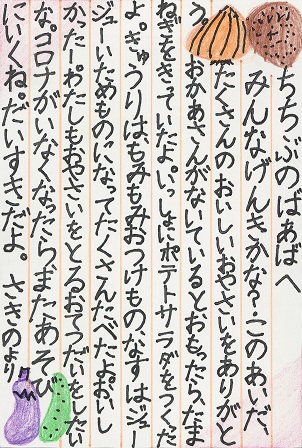 ちちぶのばあばへ
みんなげんきかな？このあいだ、
たくさんのおいしいおやさいをありがと
う。おかあさんがないているとおもったら、たま
ねぎをきっていたよ。いっしょにポテトサラダをつくった
よ。きゅうりは、もみもみおつけもの、なすは、ジュー
ジューいためものになってたくさんたべたよ。おいし
かった。わたしもおやさいをとるおてつだいをしたい
な。コロナがいなくなったら、またあそび
にいくね。だいすきだよ。 さきのより